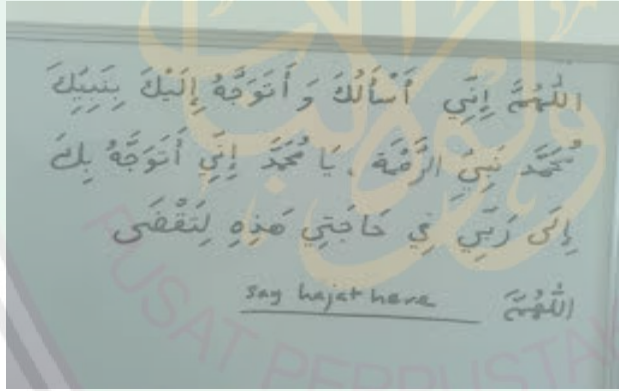 اللَّهُمَّ إِنِّي أَسْأَلُكَ وَ أَتَوَجَّهُ إِلَيْكَ بِنَبِيِّكَ
مُحَمَّد نَبِيِّ الرَّحْمَة . يَا مُحَمَّد إِنِّي أَتَوَجَّهُ بِكَ
إِلَى رَبِّي فِي حَاجَتِي هَذِهِ لِتَقْضَى
اللَّهُمَّ say hajat here
PUSAT PERPUSTA